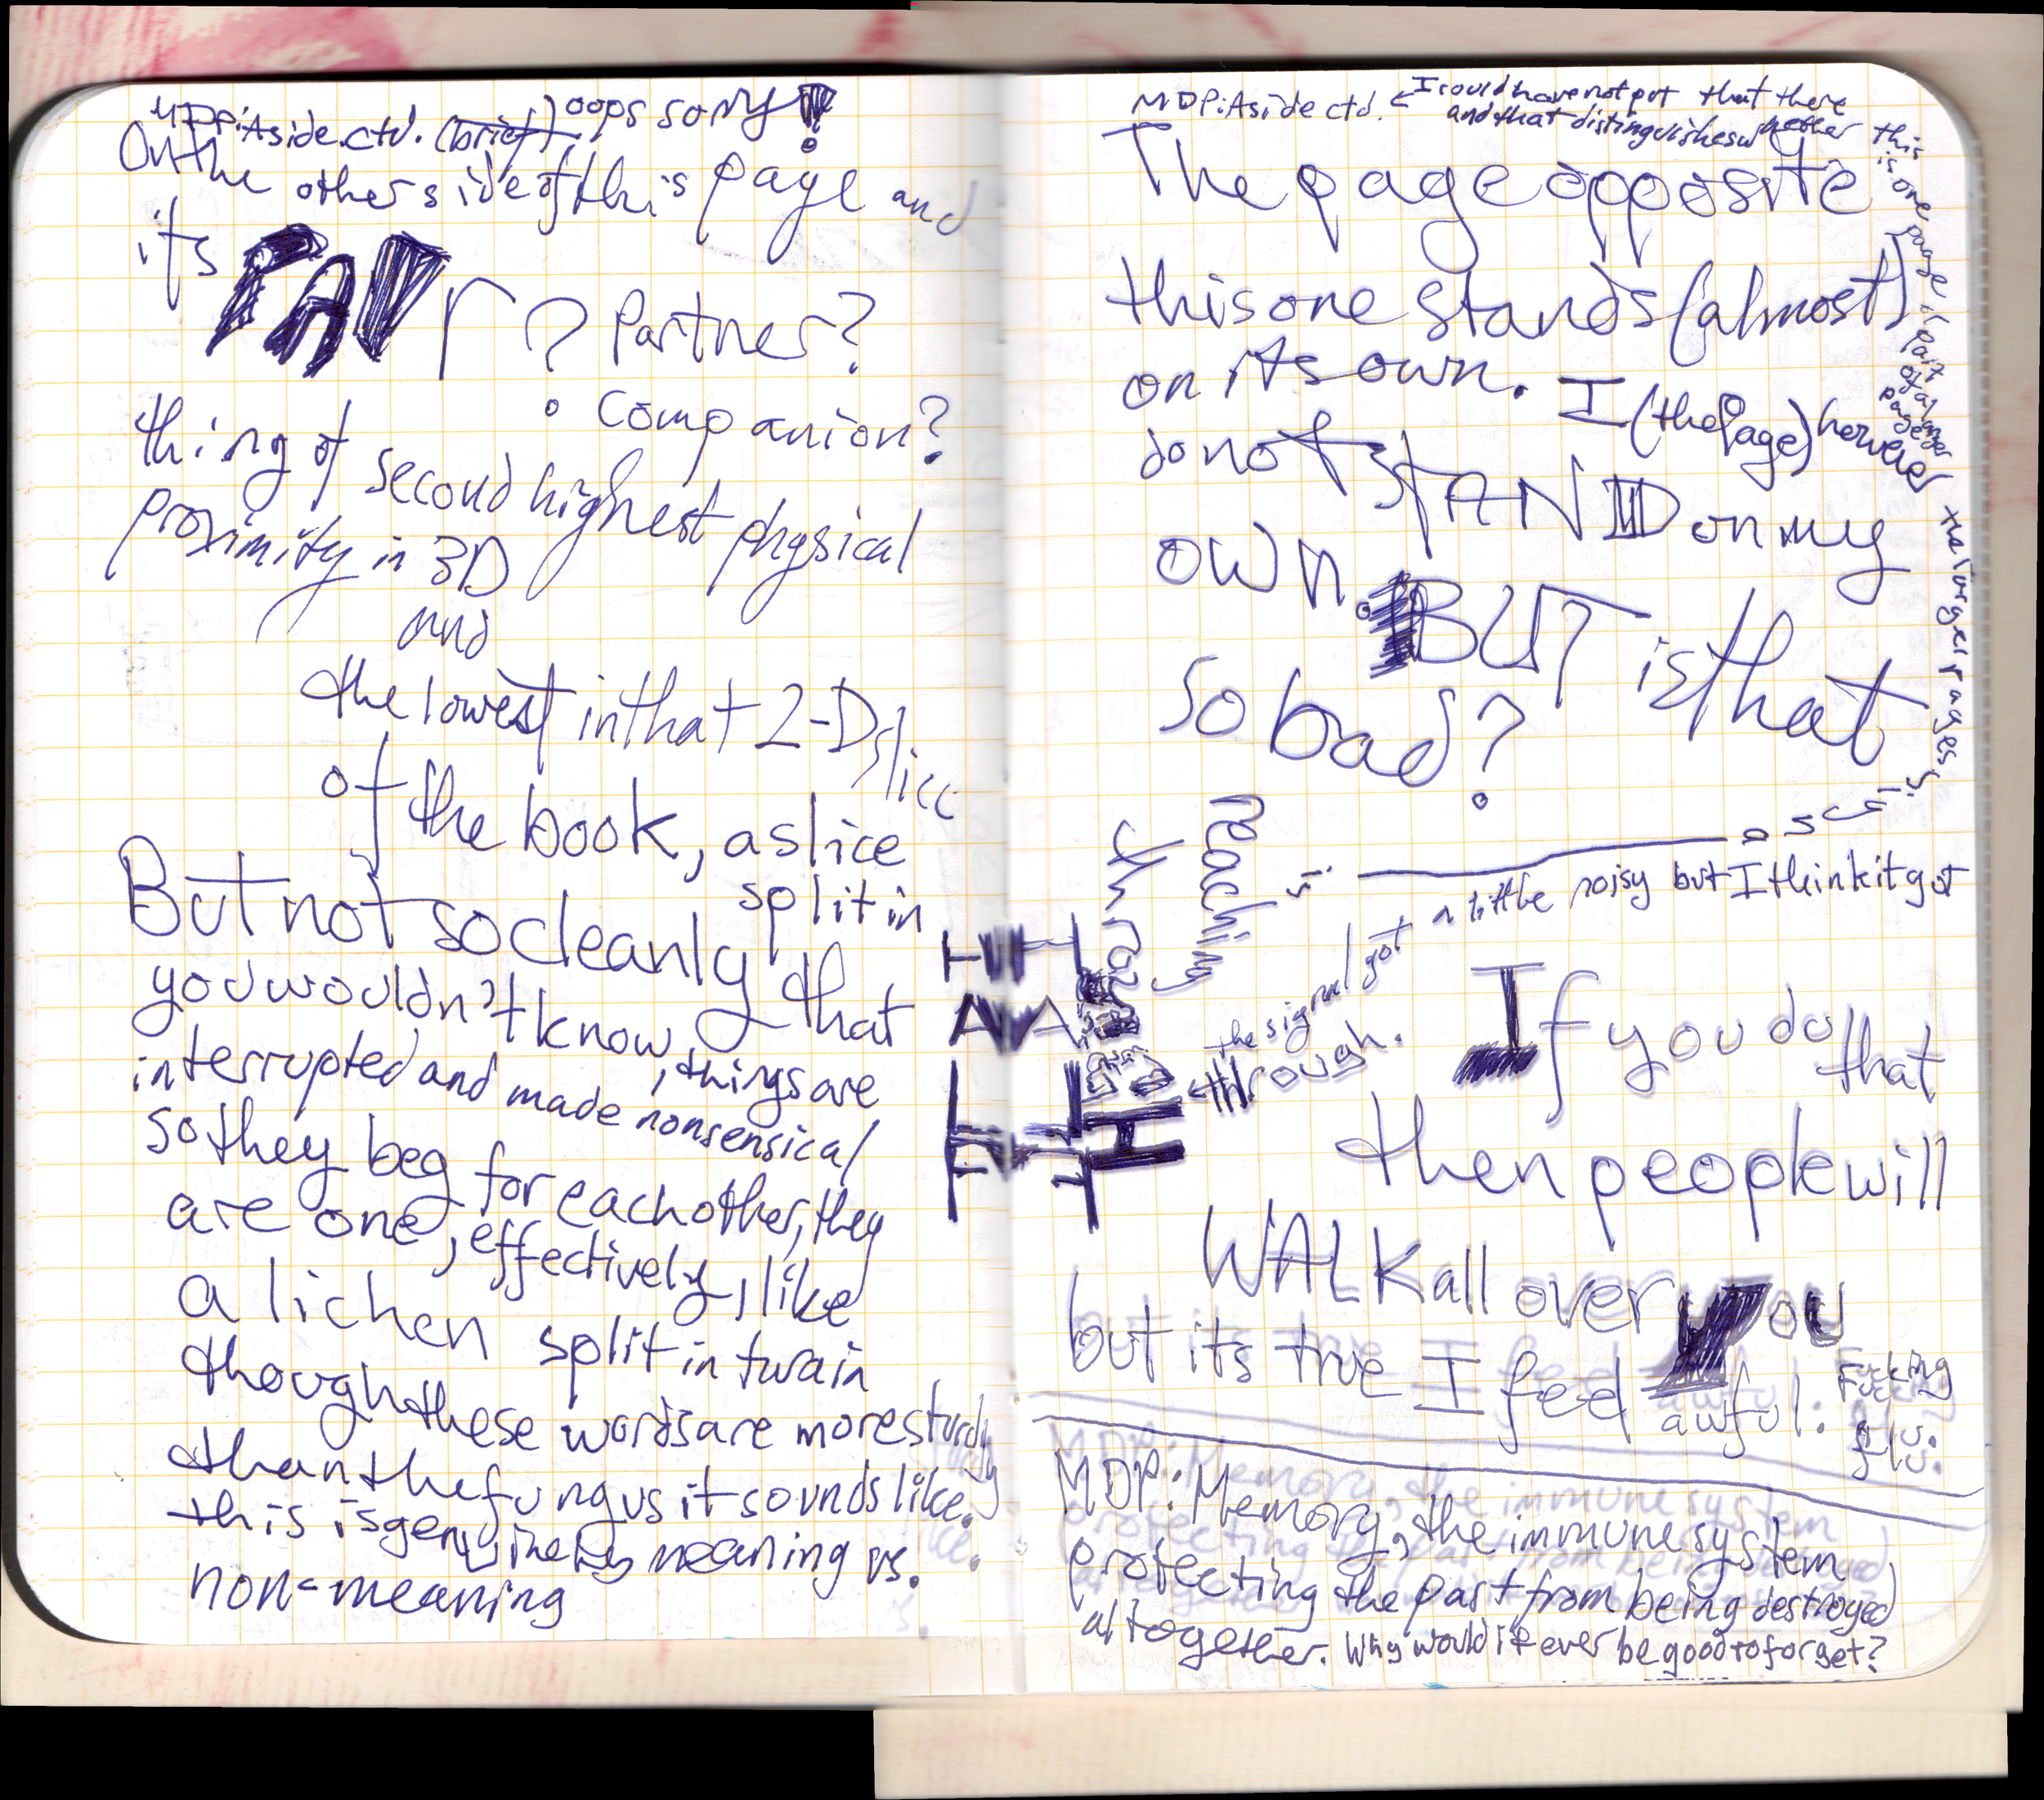 MDP: Aside ctd. (brief) oops sorry!
On the other side of this page and
its PAIr? Partner?
Companion?
thing of second highest physical
proximity in 3D
and
the lowest in that 2-D slice
of the book, a slice
split in
But not so cleanly that
you wouldn't know, things are
interrupted and made nonsensical
so they beg for each other, they
are one, effectively, like
a lichen split in twain
though these words are more sturdy
than the fungus it sounds like.
this is genuinely meaning vs.
non-meaning
MDP: Aside ctd. ← I could have not put that there
and that distinguishes whether this
is one page or part of a larger page
the larger pages
The page opposite
this one stands (almost)
on its own. I (the Page) however
do not STAND on my
own. BUT is that
so bad?
reaching
through
HI
the signal got a little noisy but I think it got
← through.
If you do that
then people will
WALK all over you
but its true I feel awful. Fucking
flu.
MDP: Memory, the immune system
protecting the past from being destroyed
altogether. Why would it ever be good to forget?